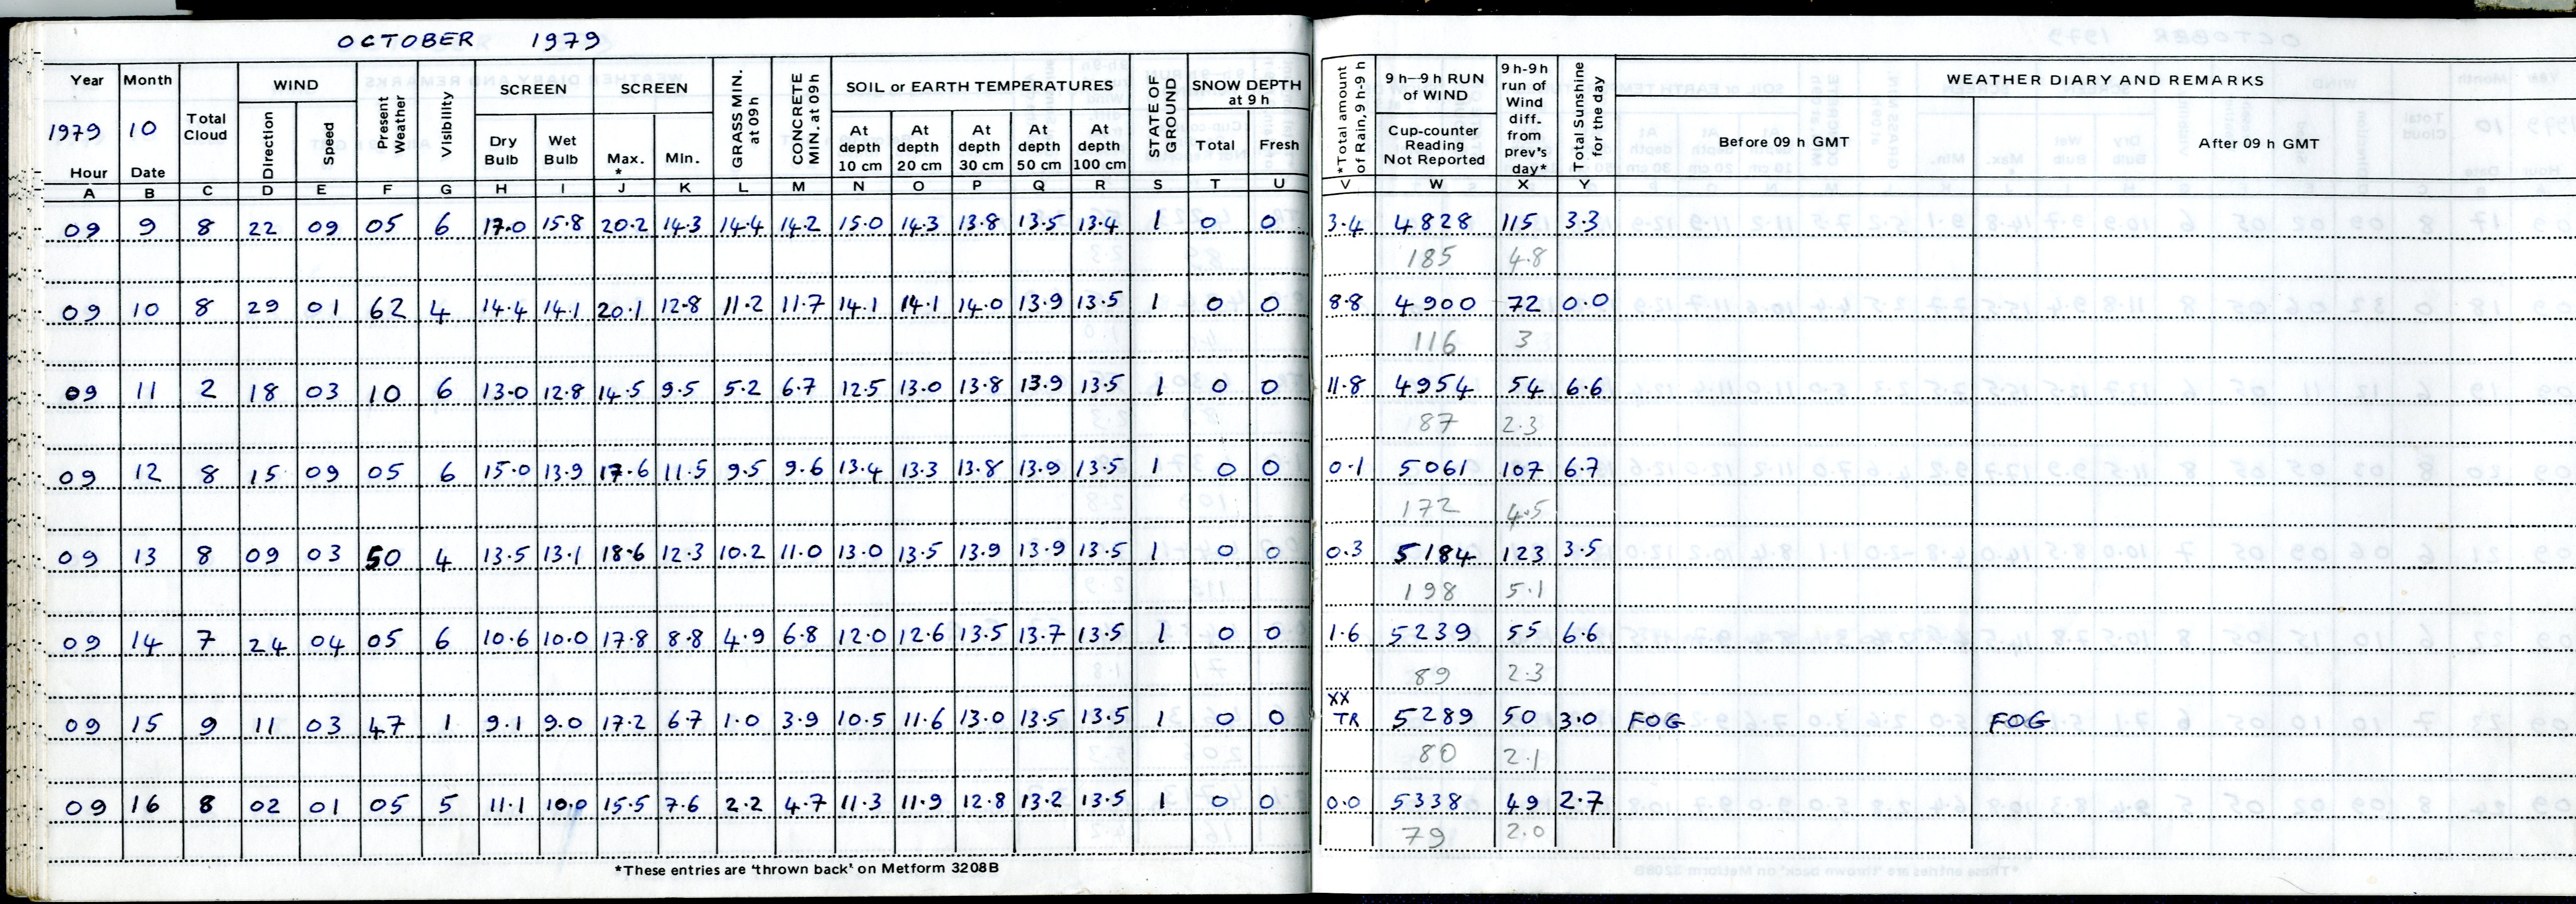 OCTOBER 1979
Year Month Total Cloud WIND Present Weather Visibility SCREEN SCREEN GRASS MIN. at 09h CONCRETE MIN. at 09h SOIL or EARTH TEMPERATURES STATE OF GROUND SNOW DEPTH at 9 h *Total amount of Rain, 9 h-9 h 9 h—9 h RUN of WIND 9 h-9h run of Wind diff. from prev's day* Total Sunshine for the day WEATHER DIARY AND REMARKS
1979 10 Direction Speed Dry Bulb Wet Bulb Max. * Min. At depth 10 cm At depth 20 cm At depth 30 cm At depth 50 cm At depth 100 cm Total Fresh Cup-counter Reading Not Reported Before 09 h GMT After 09 h GMT
Hour Date
A B C D E F G H I J K L M N O P Q R S T U V W X Y
09 9 8 22 09 05 6 17.0 15.8 20.2 14.3 14.4 14.2 15.0 14.3 13.8 13.5 13.4 1 0 0 3.4 4828 115 3.3
185 4.8
09 10 8 29 01 62 4 14.4 14.1 20.1 12.8 11.2 11.7 14.1 14.1 14.0 13.9 13.5 1 0 0 8.8 4900 72 0.0
116 3
09 11 2 18 03 10 6 13.0 12.8 14.5 9.5 5.2 6.7 12.5 13.0 13.8 13.9 13.5 1 0 0 11.8 4954 54 6.6
87 2.3
09 12 8 15 09 05 6 15.0 13.9 17.6 11.5 9.5 9.6 13.4 13.3 13.8 13.9 13.5 1 0 0 0.1 5061 107 6.7
172 4.5
09 13 8 09 03 50 4 13.5 13.1 18.6 12.3 10.2 11.0 13.0 13.5 13.9 13.9 13.5 1 0 0 0.3 5184 123 3.5
198 5.1
09 14 7 24 04 05 6 10.6 10.0 17.8 8.8 4.9 6.8 12.0 12.6 13.5 13.7 13.5 1 0 0 1.6 5239 55 6.6
89 2.3
XX
09 15 9 11 03 47 1 9.1 9.0 17.2 6.7 1.0 3.9 10.5 11.6 13.0 13.5 13.5 1 0 0 TR 5289 50 3.0 FOG FOG
80 2.1
09 16 8 02 01 05 5 11.1 10.0 15.5 7.6 2.2 4.7 11.3 11.9 12.8 13.2 13.5 1 0 0 0.0 5338 49 2.7
79 2.0
*These entries are 'thrown back' on Metform 3208B